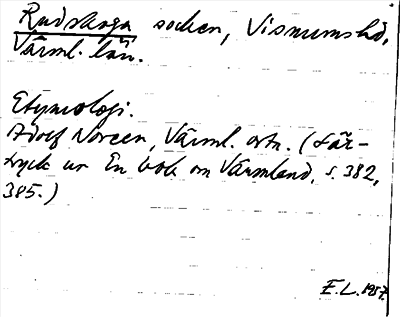 Rudskoga socken, Visnums hd,
Värml. län.
Etymologi.
Adolf Noreen, Värml. ortn. (Sär-
tryck ur En bok om Värmland, s. 382,
385.)
E.L. 1957.